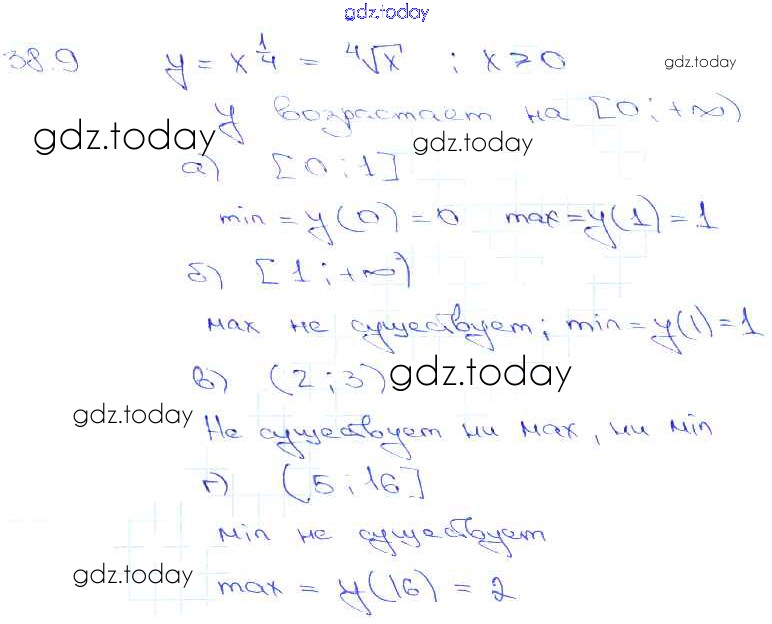 gdz.today
38.9 y = x^{1/4} = ⁴√x ; x ≥ 0 gdz.today
y возрастает на [0; +∞)
gdz.today gdz.today
а) [0; 1]
min = y(0) = 0 max = y(1) = 1
б) [1; +∞)
мах не существует; min = y(1) = 1
в) (2; 3) gdz.today
gdz.today
Не существует ни мах, ни min
г) (5; 16]
min не существует
gdz.today
max = y(16) = 2